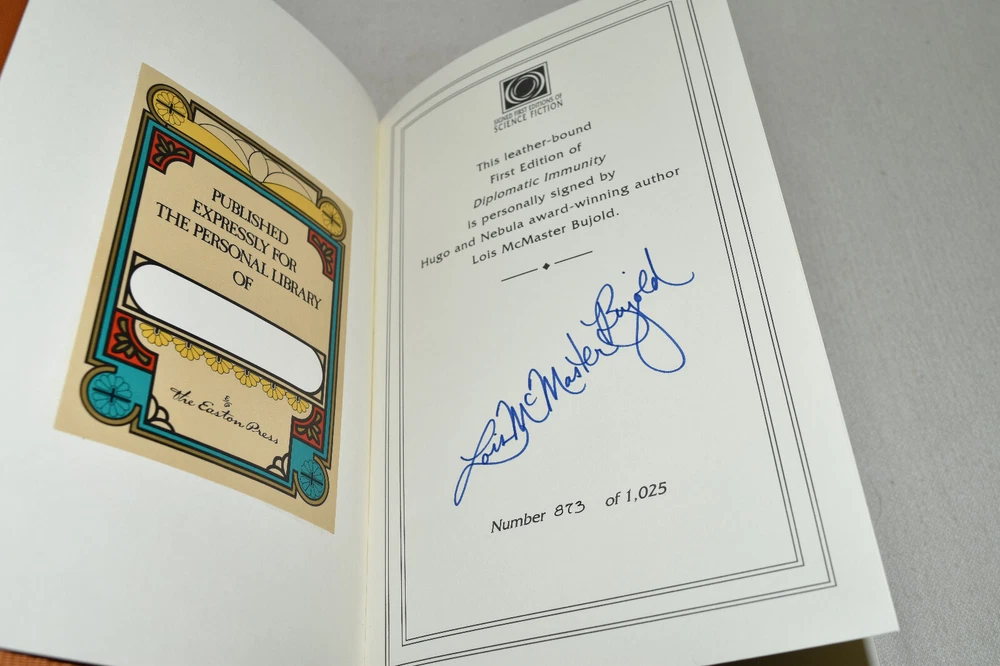 PUBLISHED
EXPRESSLY FOR
THE PERSONAL LIBRARY
OF
The Easton Press
SIGNED FIRST EDITIONS OF
SCIENCE FICTION
This leather-bound
First Edition of
Diplomatic Immunity
is personally signed by
Hugo and Nebula award-winning author
Lois McMaster Bujold.
Lois McMaster Bujold
Number 873 of 1,025